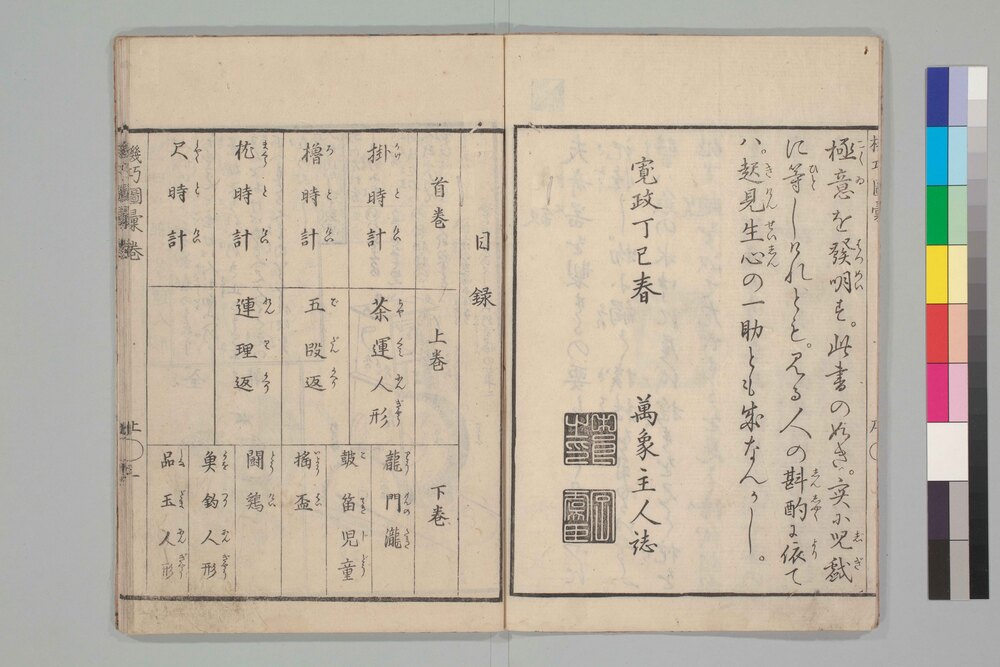 極意を發明す。此書の如き。実に児戯
に等しけれども。見る人の斟酌に依て
ハ。起見生心の一助とも成なんかし。
寛政丁巳春
萬象主人誌
目録
首巻
掛時計
櫓時計
枕時計
尺時計
上巻
茶運人形
五段返
連理返
下巻
龍門瀧
鼓笛児童
揺盃
闘鶏
魚釣人形
品玉人形
機巧圖彙